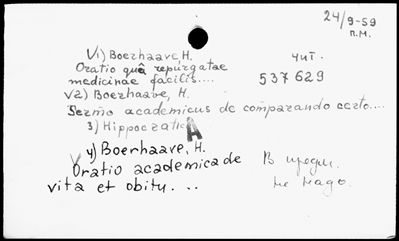 24/9-59
п.м.
V1) Boerhaave, H.
Oratio quâ repurgatae
medicinae facilis....
чит.
537629
V2) Boerhaave, H.
Sermo academicus de comparando certo....
3) Hippocratic
A
V 4) Boerhaave, H.
Oratio academica de
vita et obitu. ..
В предм.
не надо.